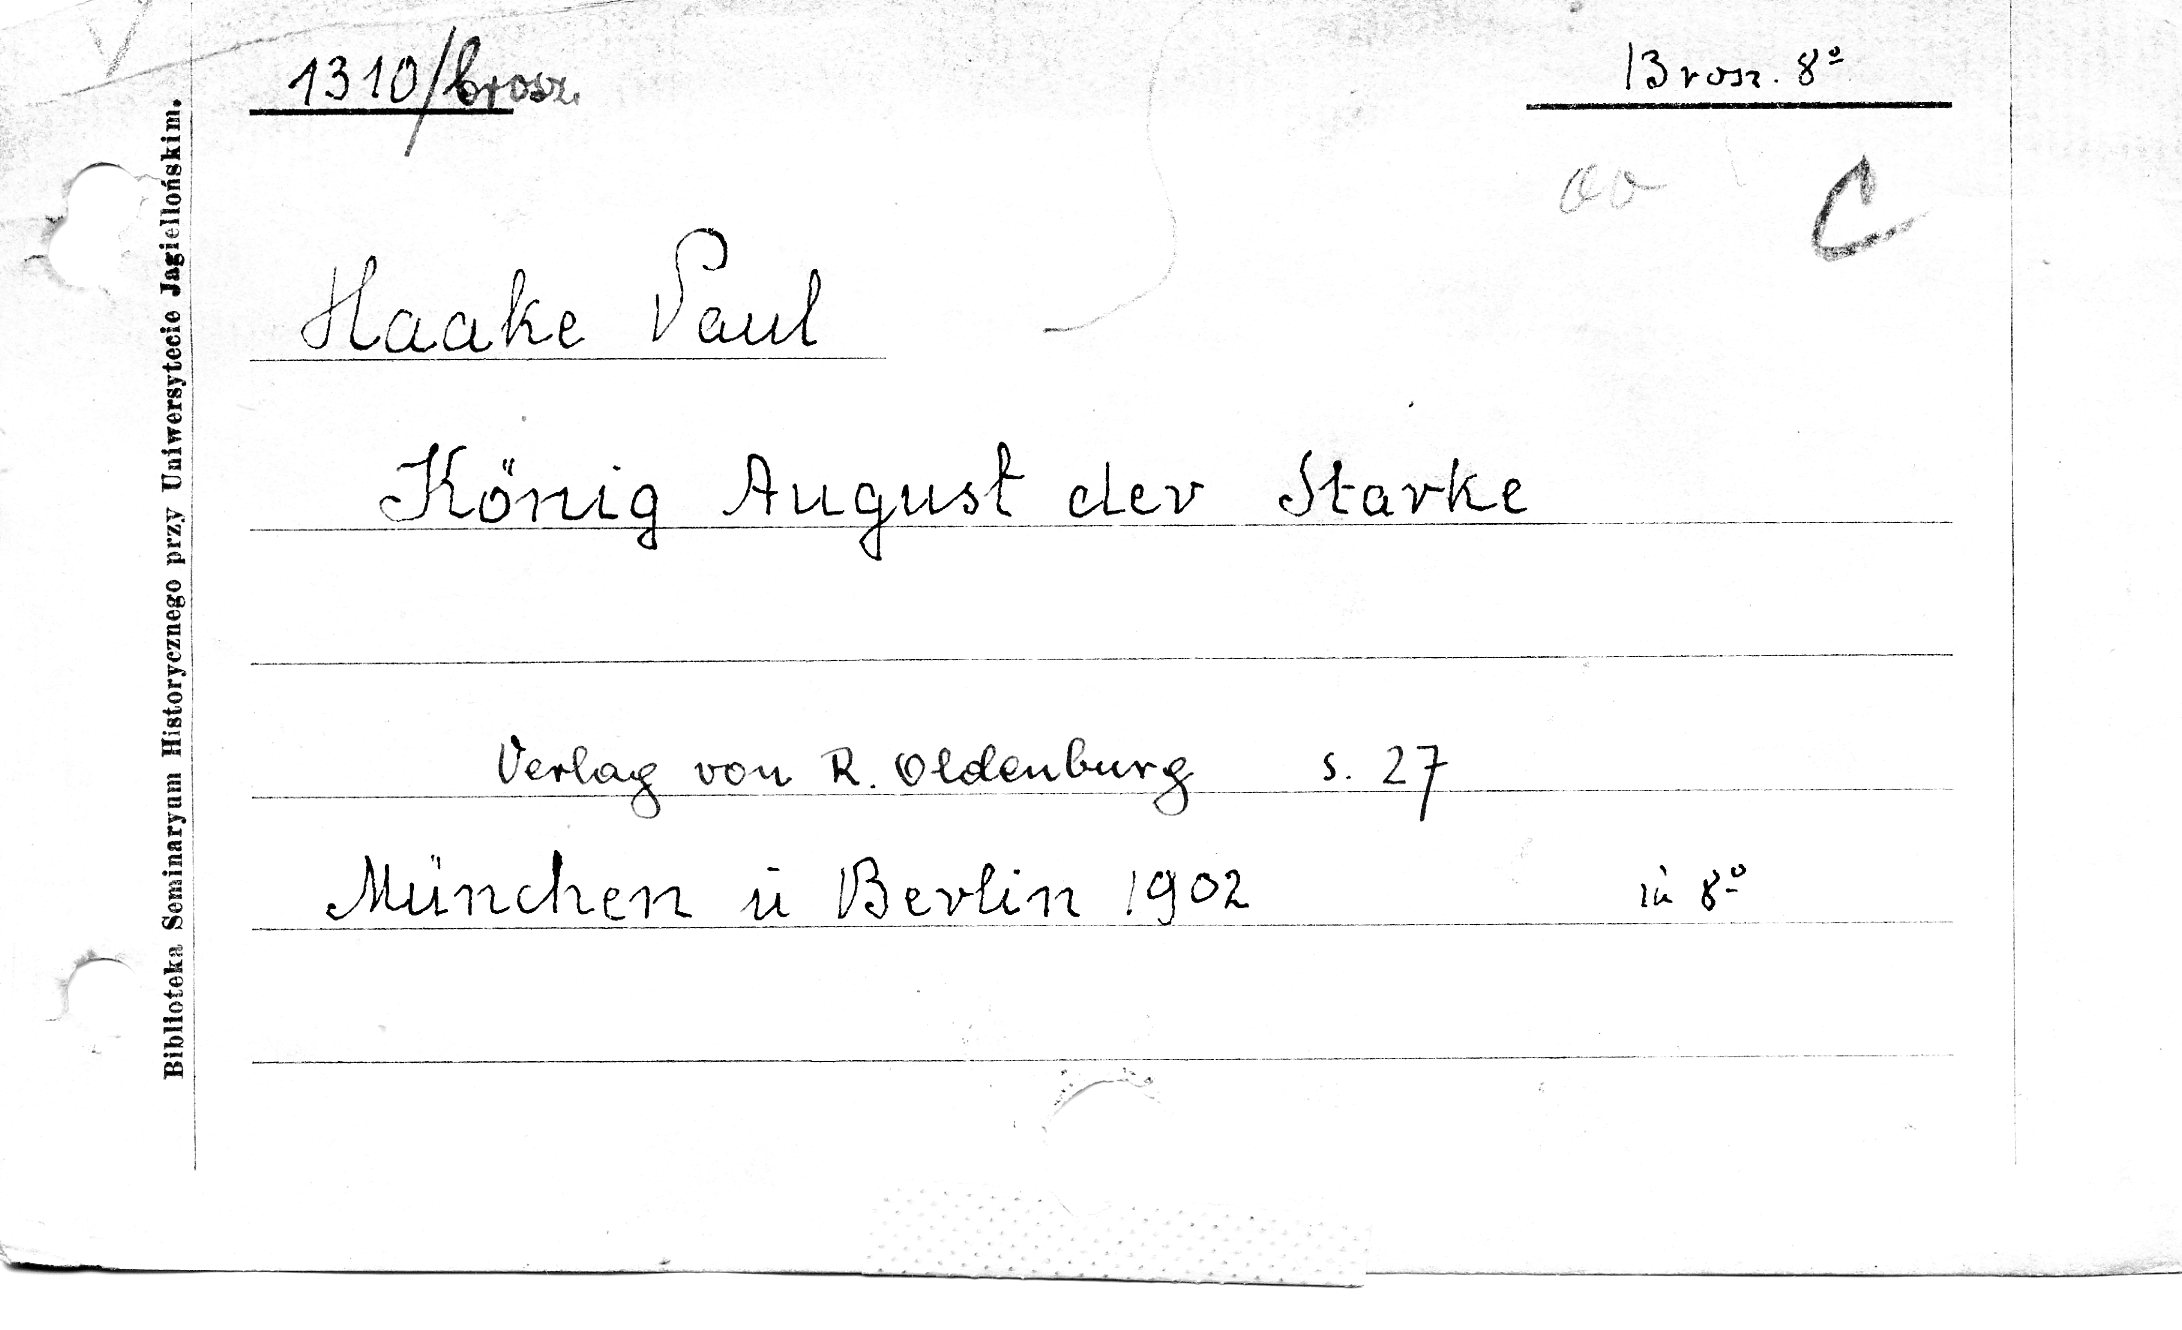 1310/brosz.
Brosz. 8º
C
Haake Paul
König August der Starke
Verlag von R. Oldenburg s. 27
München ü Berlin 1902 in 8º
Biblioteka Seminaryum Historycznego przy Uniwersytecie Jagiellońskim.